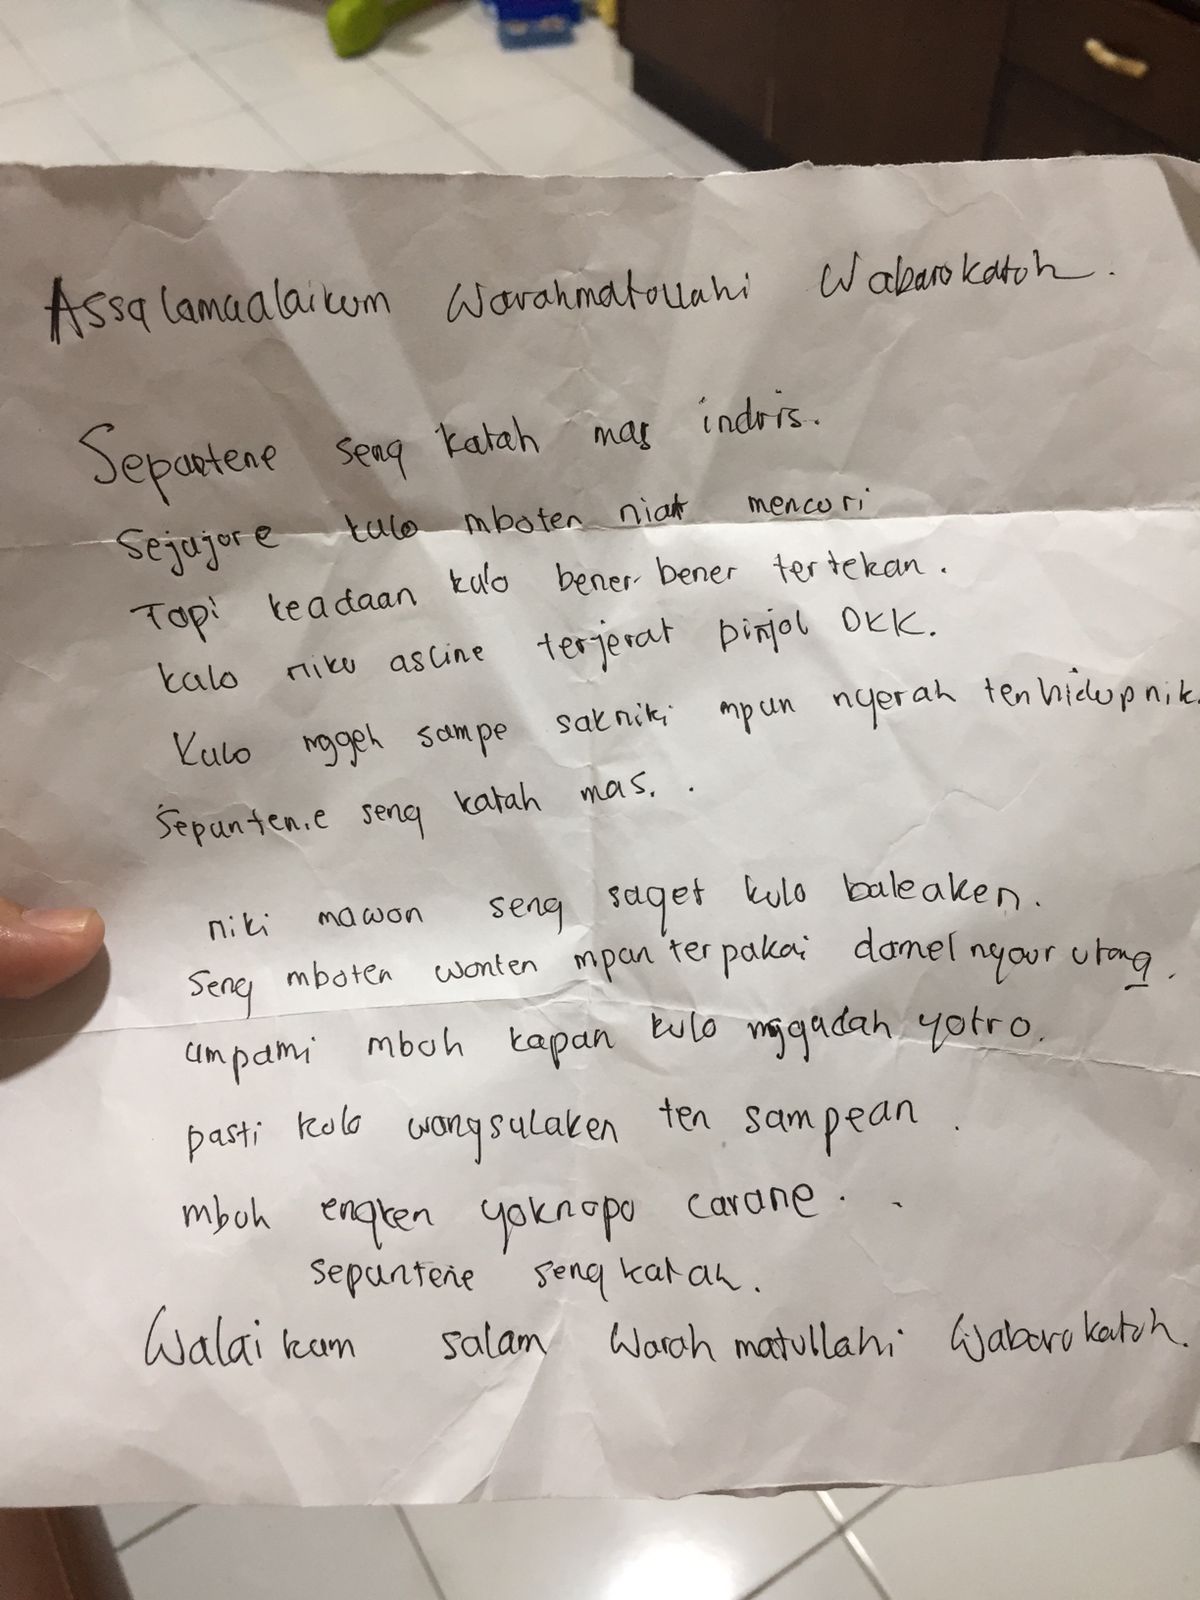 Assalamualaikum Warahmatullahi Wabarokatoh.
Sepuntene seng katah mas indris.
Sejajore kulo mboten niat mencuri
Tapi keadaan kulo bener-bener tertekan.
kalo niku asline terjerat pinjol DKK.
Kulo nggeh sampe sakniki mpun nyerah ten hidup nik.
Sepuntene seng katah mas. .
niki mawon seng saget kulo baleaken.
Seng mboten wonten mpun terpakai damel nyaur utang.
umpami mboh kapan kulo nggadah yotro.
pasti kulo wangsulaken ten sampean.
mboh engken yoknopo carane. .
sepuntene seng katah.
Walaikum salam Warahmatullahi Wabarokatoh.